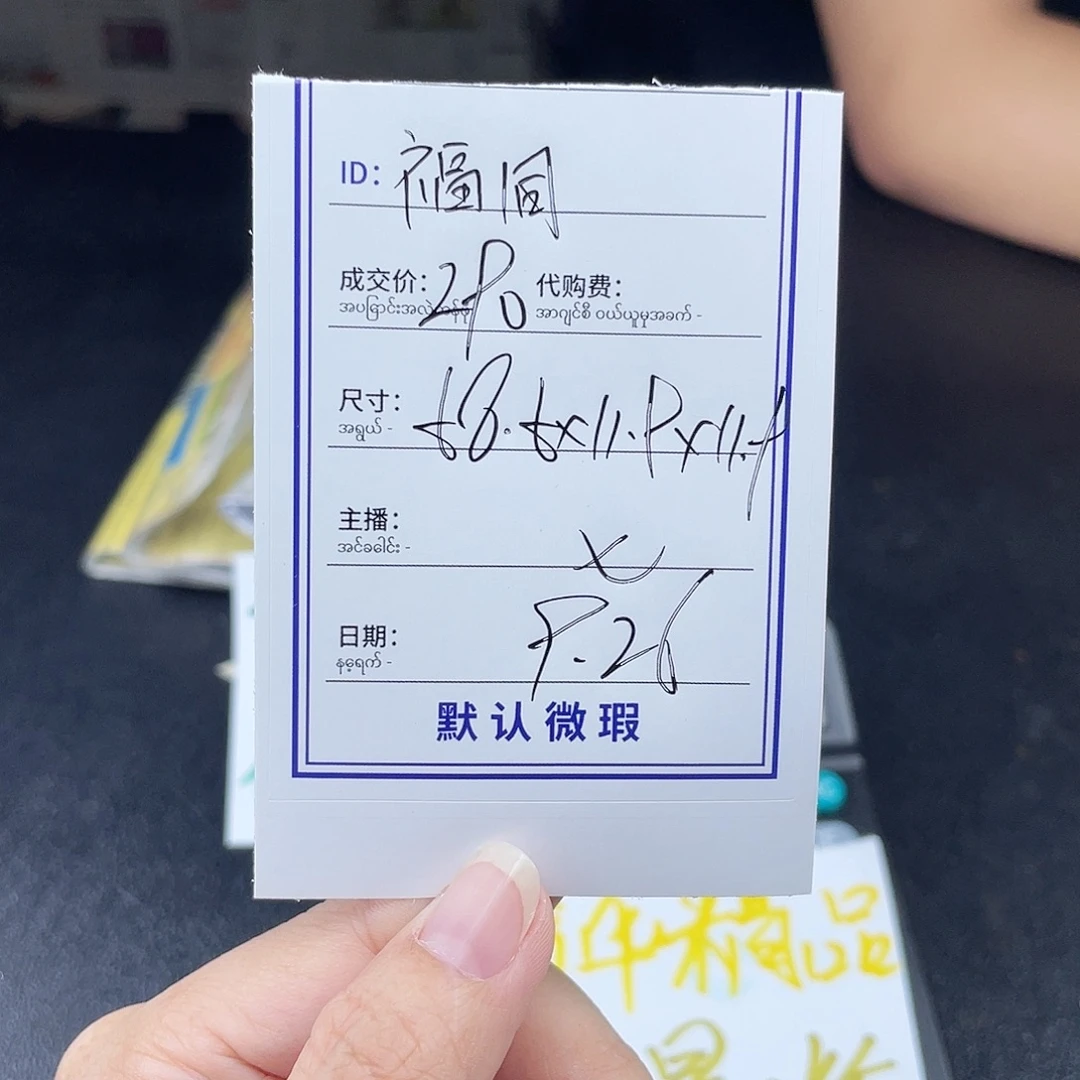 ID: 福圆
成交价: 290 代购费:
အပြောင်းအလဲတန်ဖိုး အာဂျင်စီ ဝယ်ယူမှုအခက် -
尺寸: 58.5x11.9x11.9
အရွယ် -
主播: x
အင်ခေါင်း -
日期: 9.26
နေ့ရက် -
默认微瑕
精品